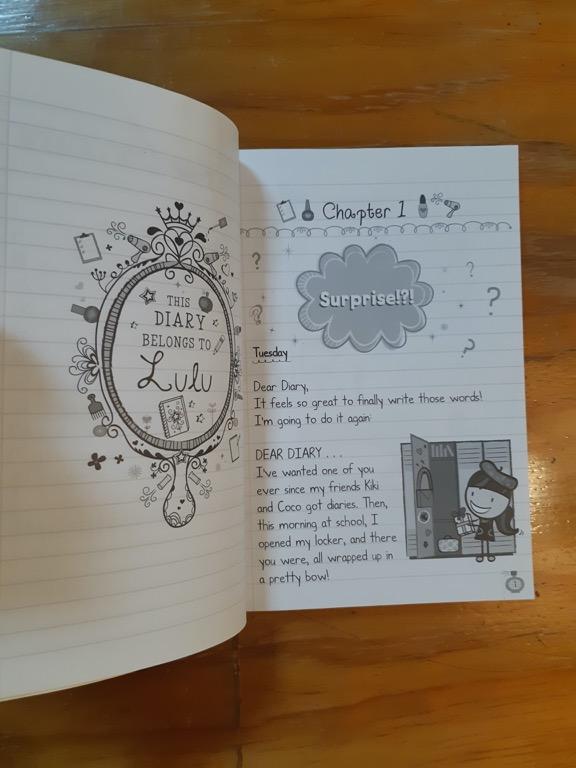 THIS
DIARY
BELONGS TO
Lulu
Chapter 1
Surprise!?!
Tuesday
Dear Diary,
It feels so great to finally write those words!
I'm going to do it again:
DEAR DIARY . . .
I've wanted one of you
ever since my friends Kiki
and Coco got diaries. Then,
this morning at school, I
opened my locker, and there
you were, all wrapped up in
a pretty bow!
1